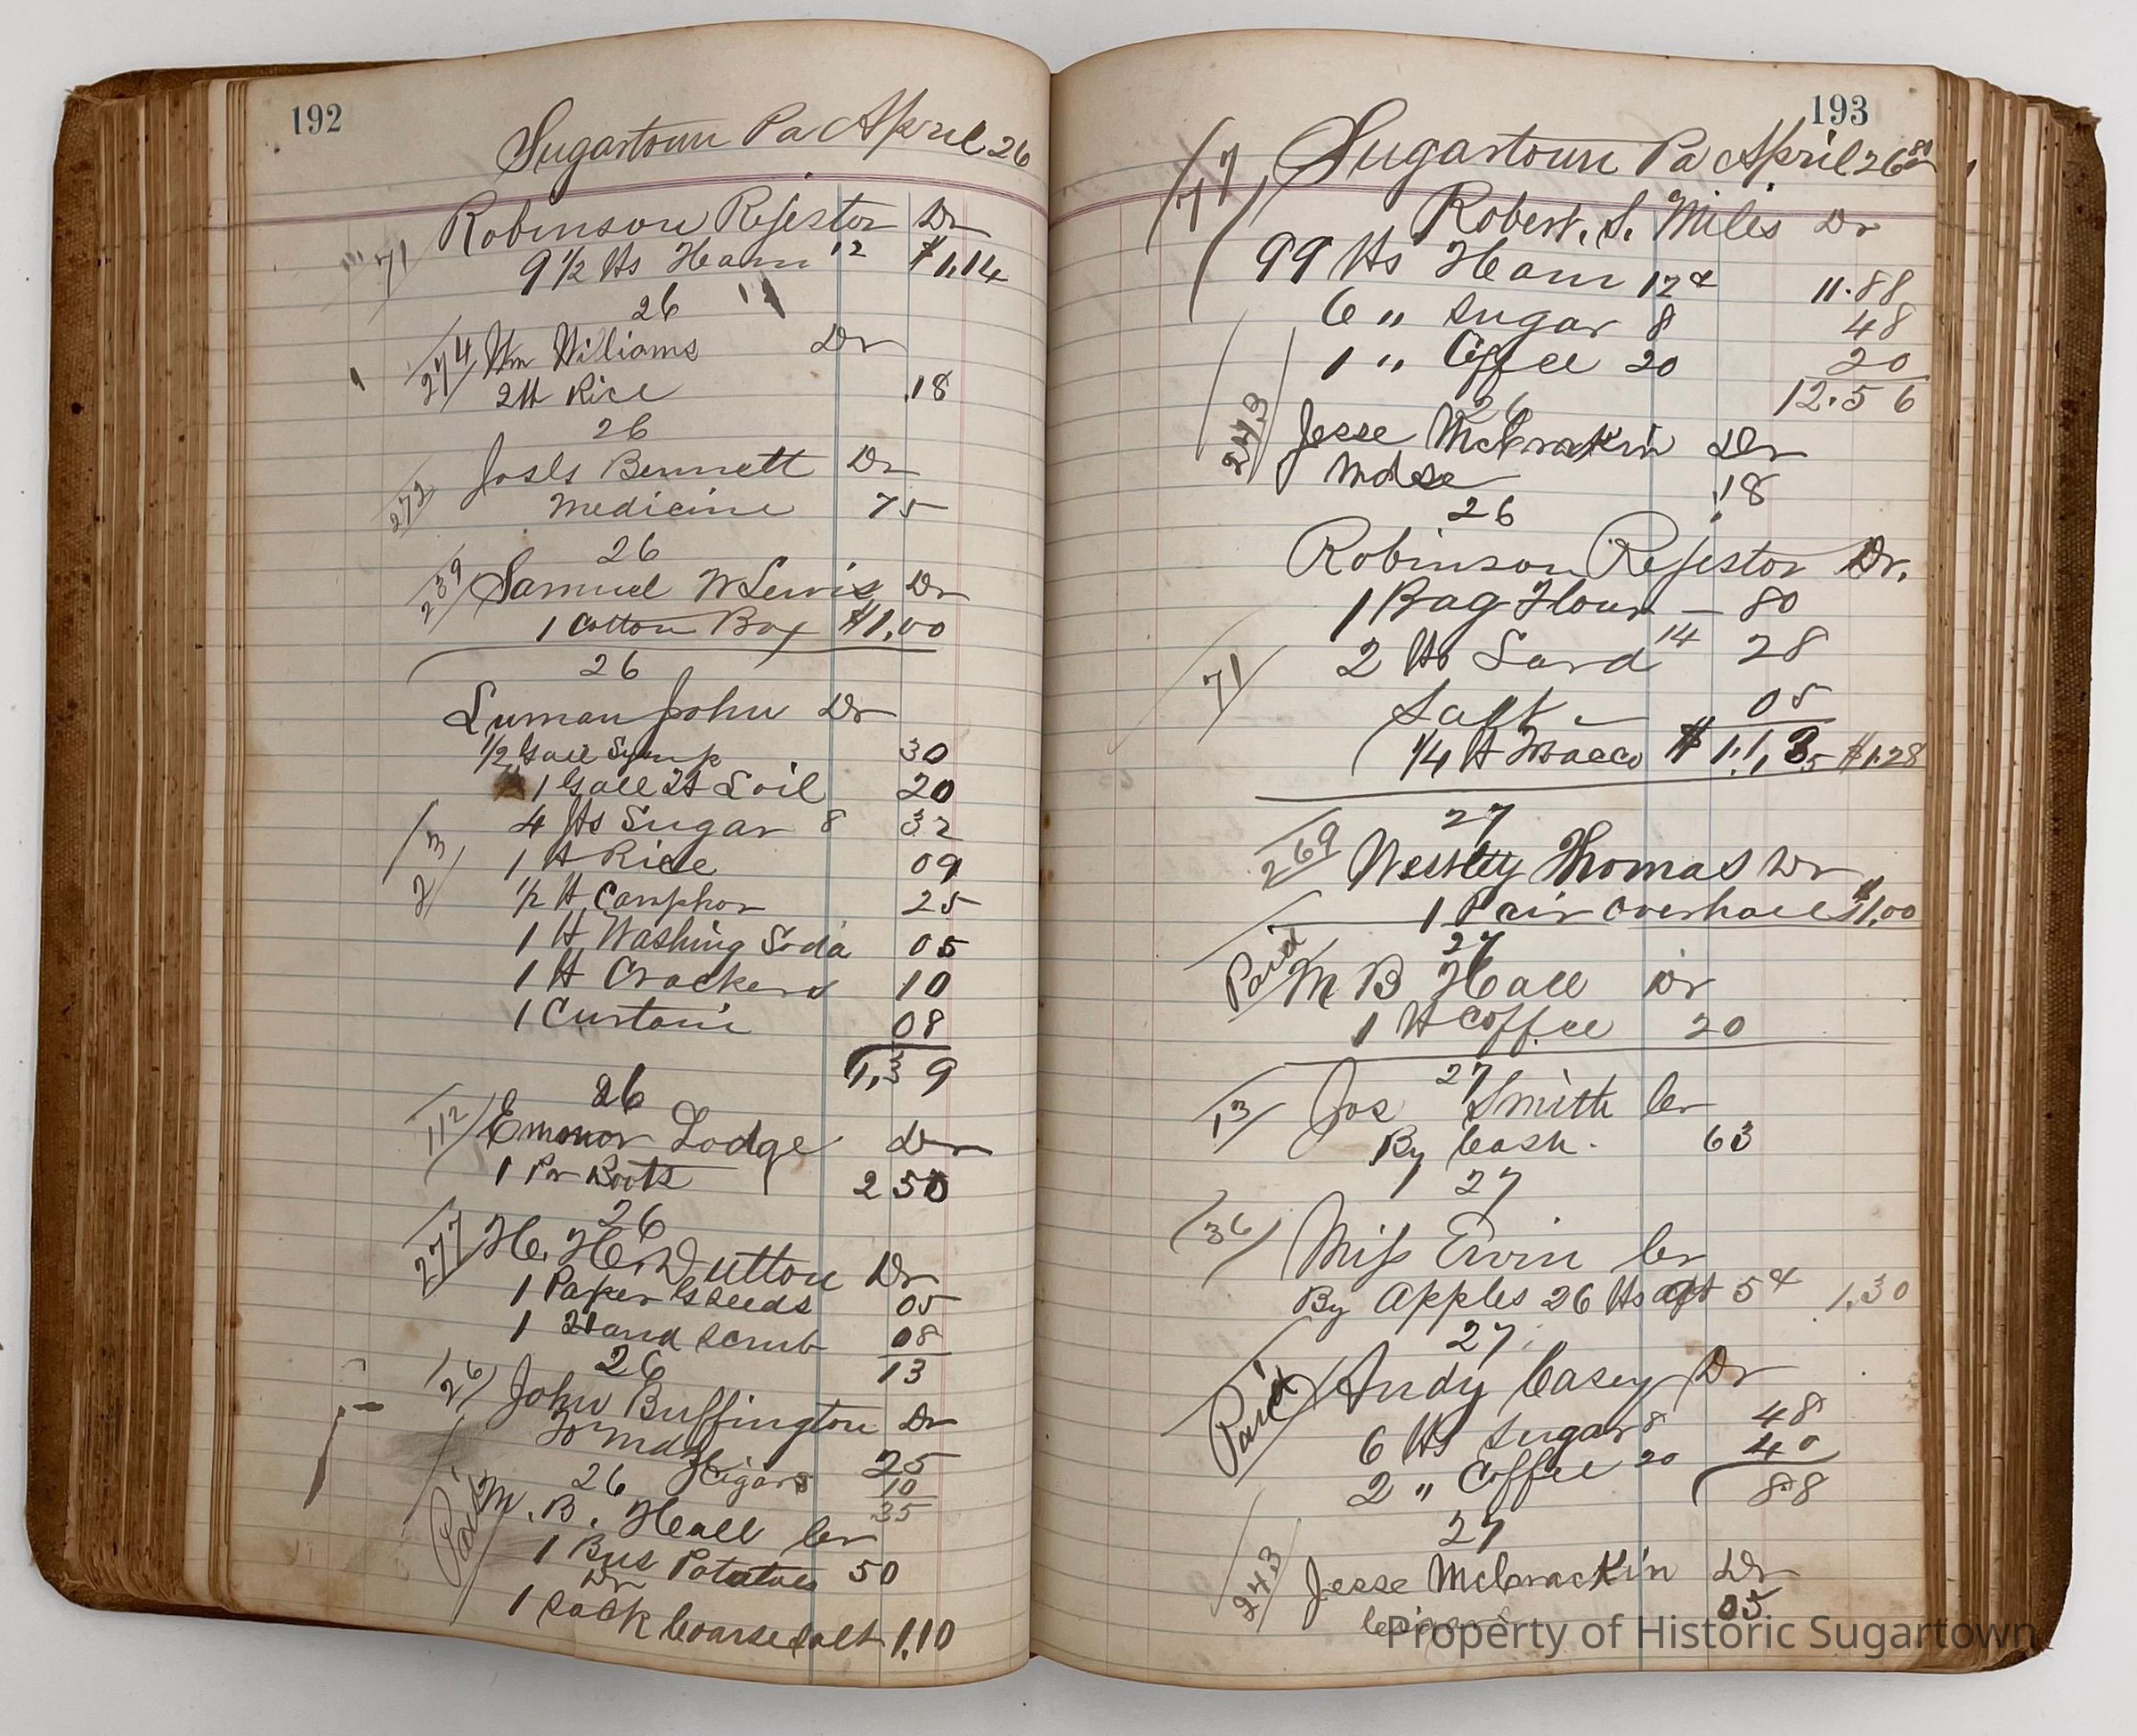 192
Sugartown Pa April 26
71 Robinson Rejestor Dr
9 1/2 lbs Ham 12 $1,14
26
274 Wm Williams Dr
2 lb Rice .18
26
Bennett Dr
272 Medicine 75
26
239 Samuel W Lewis Dr
1 Cotton Box $1,00
26
Luman John Dr
1/2 Gall Syrup 30
1 Gall oil 20
4 lbs Sugar 8 32
1 lb Rice 09
1/2 lb Camphor 25
1 lb Washing Soda 05
1 lb Crackers 10
1 Curtain 08
1,39
26
112 Emmor Lodge Dr
1 Pr Boots 2 50
26
277 H. H. Dutton Dr
1 Paper Seeds 05
1 Hand Scrub 08
26 13
26 John Buffington Dr
To Mds 25
26 Cigars 10
35
Paid M. B. Hall Cr
1 Bus Potatoes 50
Dr
1 Sack Coarse Salt 1,10
193
77 Sugartown Pa April 26 80
Robert. S. Miles Dr
99 lbs Ham 12 c 11.88
6 " Sugar 8 48
1 " Coffee 20 20
26 12.56
243 Jesse McCrackin Dr
Mdse .18
26
Robinson Rejestor Dr.
1 Bag Flour — 80
2 lbs Lard 14 28
71 Salt — 05
1/4 lb Tobacco $1.28
27
269 Thomas Dr
1 Pair Overhalls $1,00
27
Paid M B Hall Dr
1 lb Coffee 20
27
13 Jos Smith Cr
By Cash. 63
27
36 Miss Ervin Cr
By Apples 26 lbs at 5 c 1,30
27
Paid Andy Casey Dr
6 lbs Sugar 8 48
2 " Coffee 20 40
88
27
243 Jesse McCrackin Dr
05
Property of Historic Sugartown